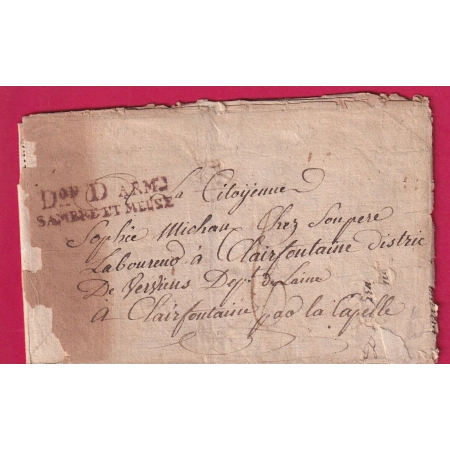 Don D ARMÉ
SAMBRE ET MEUSE
La Citoÿenne
Sophie Michau Chez Son pere
Laboureno à Clairfontaine distric
De Vervins Dept de Laine
a Clairfontaine par la Capelle